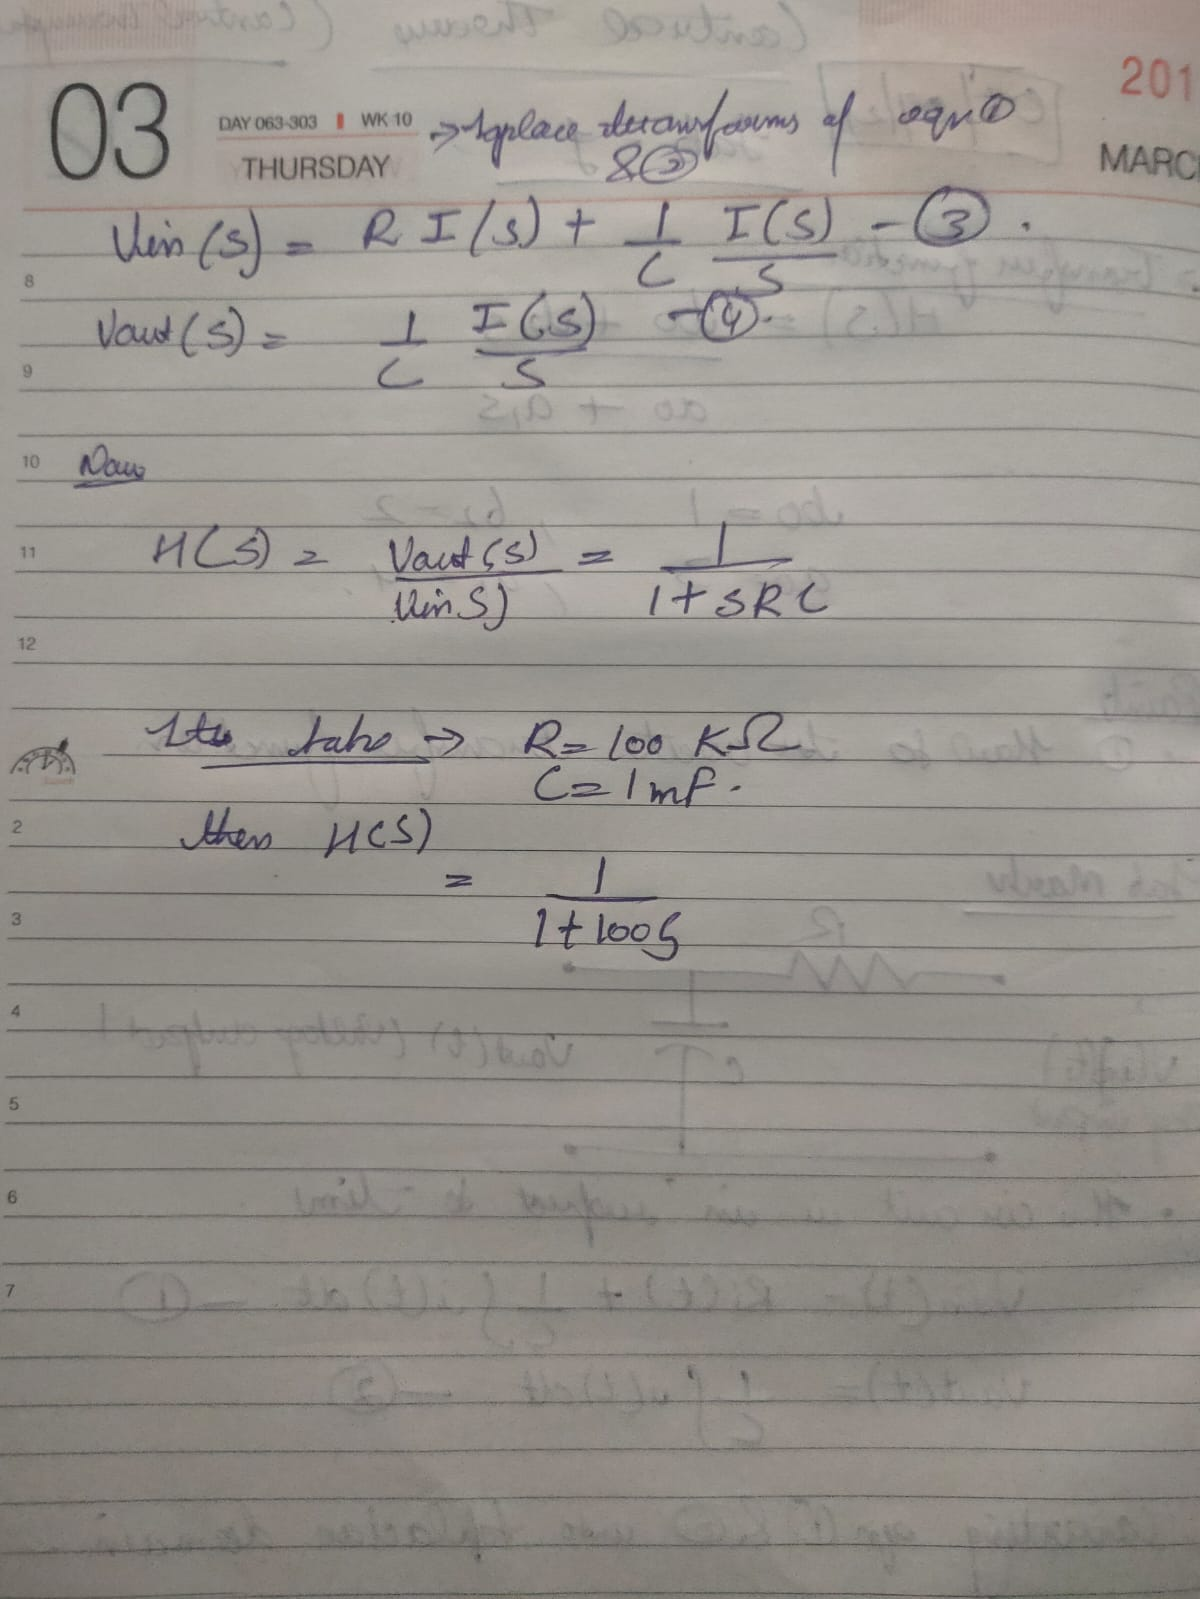 03
DAY 063-303 WK 10
THURSDAY
201
MARC
→ Laplace transforms of eqn ①
& ②
Vin (s) = R I (s) + 1/C I(s)/s - ③.
Vout (s) = 1/C I(s)/s - ④.
Now
H(s) = Vout (s)/Vin s) = 1/1 + sRC
→ R = 100 KΩ
C = 1 mf.
then H(s)
= 1/1 + 100s
8
9
10
11
12
2
3
4
5
6
7